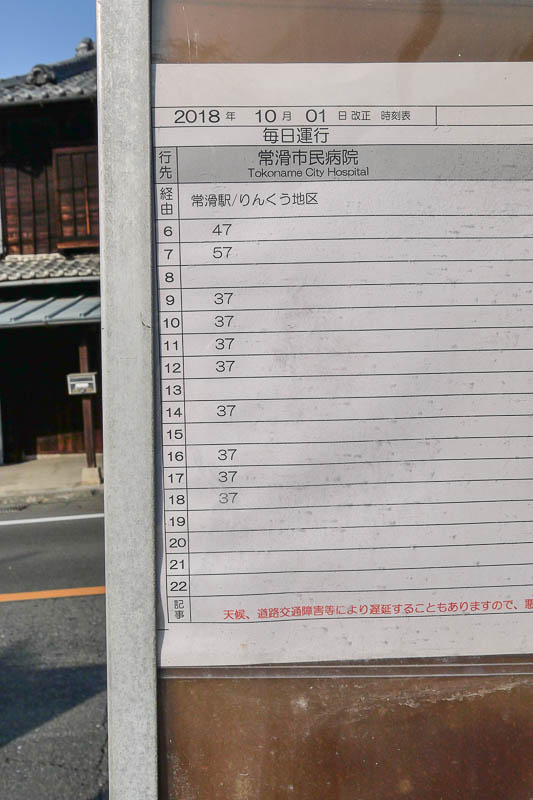 2018 年 10 月 01 日 改正 時刻表
毎日運行
行先 常滑市民病院
Tokoname City Hospital
経由 常滑駅/りんくう地区
6 47
7 57
8
9 37
10 37
11 37
12 37
13
14 37
15
16 37
17 37
18 37
19
20
21
22
記事 天候、道路交通障害等により遅延することもありますので、悪